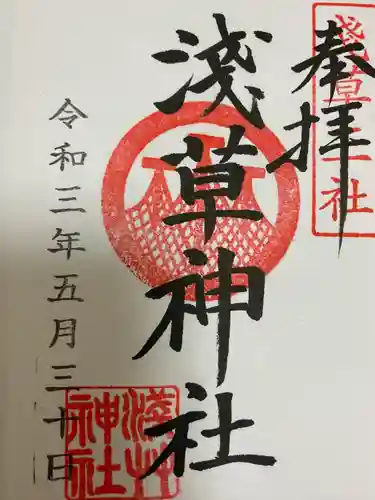 奉拝
淺草三社
淺草神社
令和三年五月三十日
淺草神社